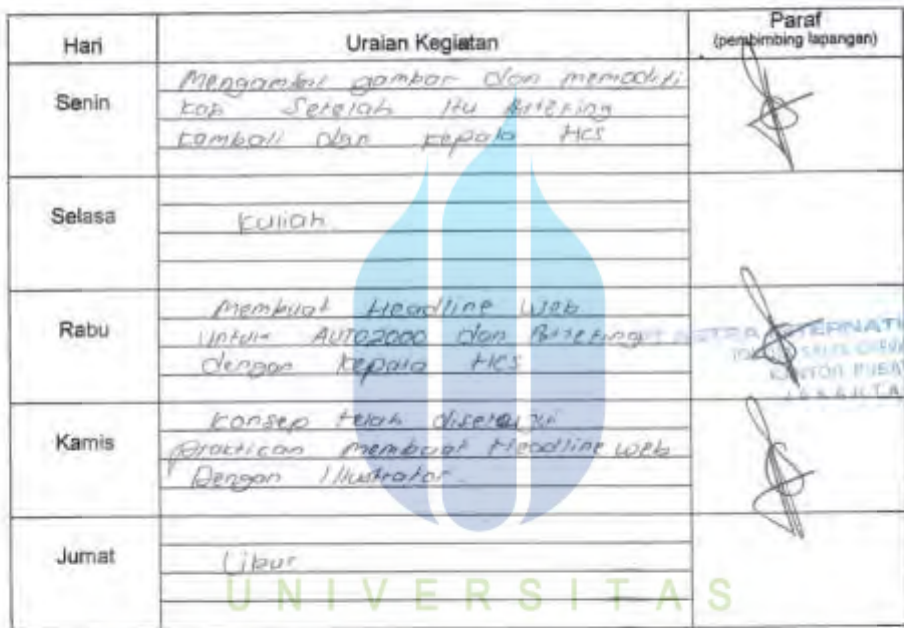 Hari Uraian Kegiatan Paraf
(pembimbing lapangan)
Senin
Mengambil gambar dan memodifi
kasi Setelah itu Briefing
kembali dan kepala HCS
Selasa
Kuliah
Rabu
Membuat Headline Web
Untuk AUTO2000 dan Briefing
dengan kepala HCS
ASTRA INTERNATI
KANTOR PUSAT
JAKARTA
Kamis
Konsep telah disetujui
praktican membuat Headline web
Dengan Illustrator
Jumat
Libur
UNIVERSITAS